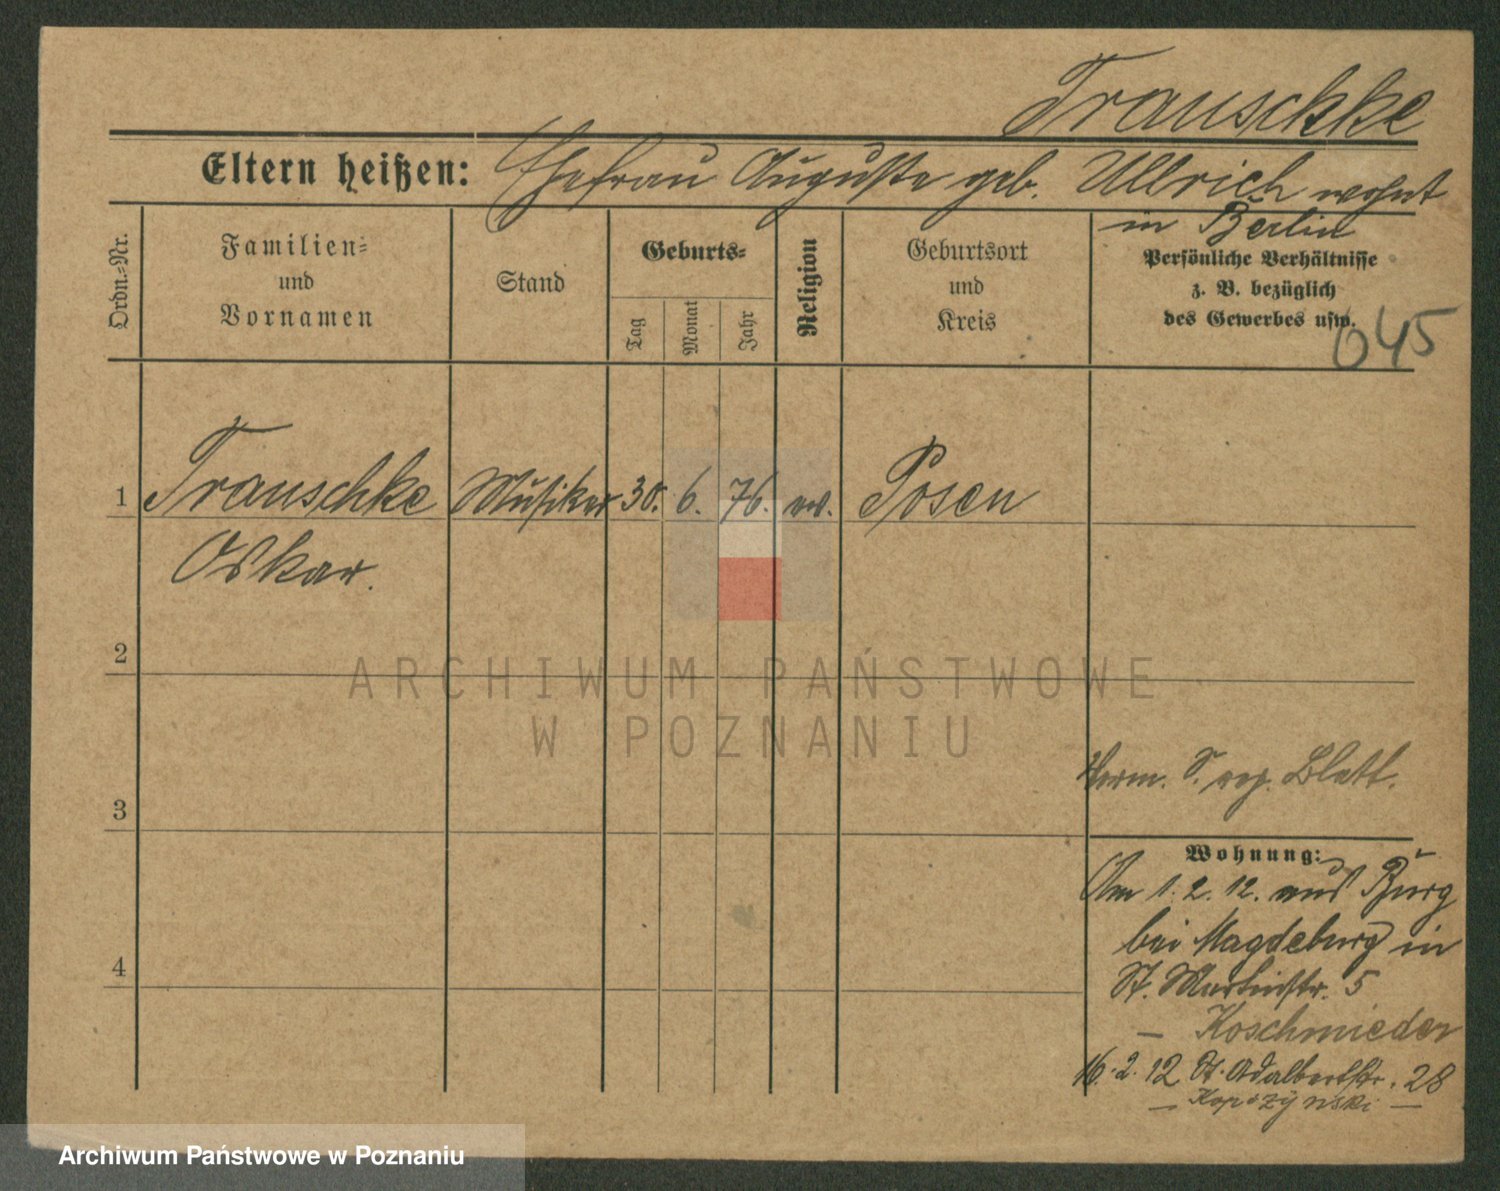 Trauschke
Eltern heißen: Ehefrau Auguste geb. Ullrich wohnt
in Berlin
Ordn.=Nr.
Familien=
und
Vornamen
Stand
Geburts=
Tag
Monat
Jahr
Religion
Geburtsort
und
Kreis
Persönliche Verhältnisse
z. B. bezüglich
des Gewerbes usw.
045
1 Trauschke Musiker 30. 6. 76. ev. Posen
Oskar.
2
ARCHIWUM PAŃSTWOWE
W POZNANIU
Verm. S. rog. Blatt.
3
Wohnung:
Am 1. 2. 12. aus Burg
bei Magdeburg in
4
St. Martinstr. 5
— Koschmieder
16. 2. 12 St. Adalbertstr. 28
— Kopczynski —
Archiwum Państwowe w Poznaniu